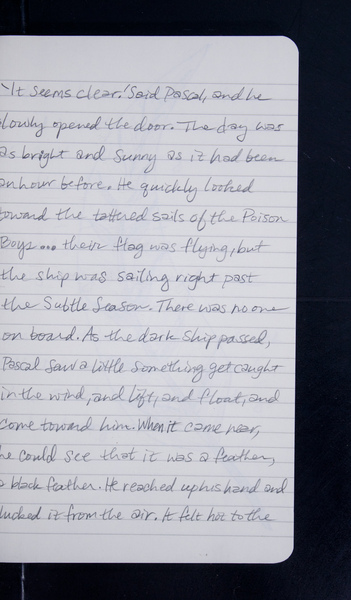 "It seems clear." Said Pascal, and he
slowly opened the door. The day was
as bright and sunny as it had been
an hour before. He quickly looked
toward the tattered sails of the Poison
Boys... their flag was flying, but
the ship was sailing right past
the Subtle Season. There was no one
on board. As the dark ship passed,
Pascal saw a little something get caught
in the wind, and lift, and float, and
come toward him. When it came near,
he could see that it was a feather,
a black feather. He reached up his hand and
plucked it from the air. It felt hot to the